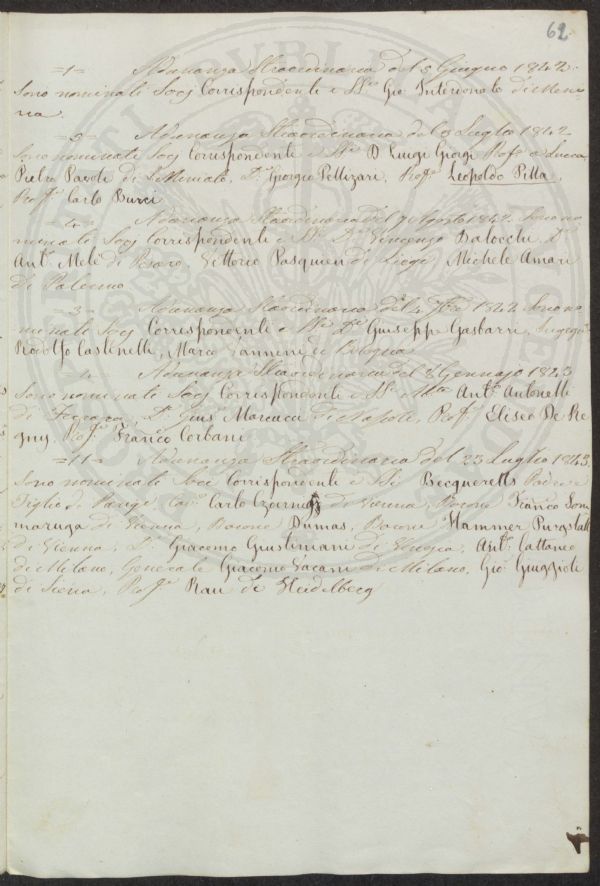 62
=1= Adunanza Straordinaria del 5 Giugno 1842.
Sono nominati Socj Corrispondenti i SS.ri Gio Interionato di Messi-
na.
=5= Adunanza Straordinaria del 3 Luglio 1842
Sono nominati Socj Corrispondenti i SS.ri D. Luigi Giorgi Prof.e a Lucca,
Pietro Pavoli di S. Miniato, D. Giorgio Pellizari, Prof.e Leopoldo Pilla,
Prof.e Carlo Burci
=4= Adunanza Straordinaria del 7 Agosto 1842. Sono no-
minati Socj Corrispondenti i SS.ri D.r Vincenzo Balocchi, D.r
Ant.o Mele di Pesaro, Vittorio Pasquien di Liege, Michele Amari
di Palermo
=3= Adunanza Straordinaria del 4 7bre 1842 Sono no-
minati Socj Corrispondenti i SS.ri D.r Giuseppe Gasbarri, Ingeg.re
Rodolfo Castinelli, Marco Vannini di Bologna
=4= Adunanza Straordinaria del 8 Gennajo 1843
Sono nominati Socj Corrispondenti i SS.ri Ant.o Antonelli
di Ferrara, D.r Gius. Marcacci di Napoli, Prof.e Eliseo De Re-
gny, Prof.e Franco Corbani
=11= Adunanza Straordinaria del 23 Luglio 1843.
Sono nominati Soci Corrispondenti i SS.ri Becquerells Padre e
Figlio di Parigi, Cav.e Carlo Czoernig di Vienna, Barone Franco Som
maruga di Vienna, Barone Dumas, Barone Hammer Purgstall
di Vienna, D. Giacomo Giustiniani di Venezia, Ant.o Cattaneo
di Milano, Generale Giacomo Vacani di Milano, Gio. Gruggioli
di Siena, Prof.e Rau de Heidelberg